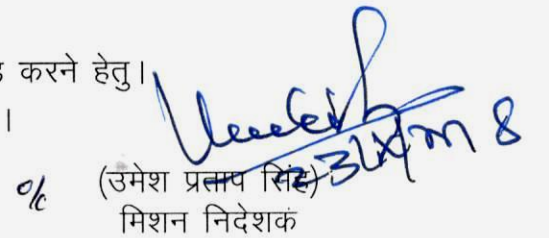 करने हेतु।
।
Umesh
o/c (उमेश प्रताप सिंह)
मिशन निदेशक